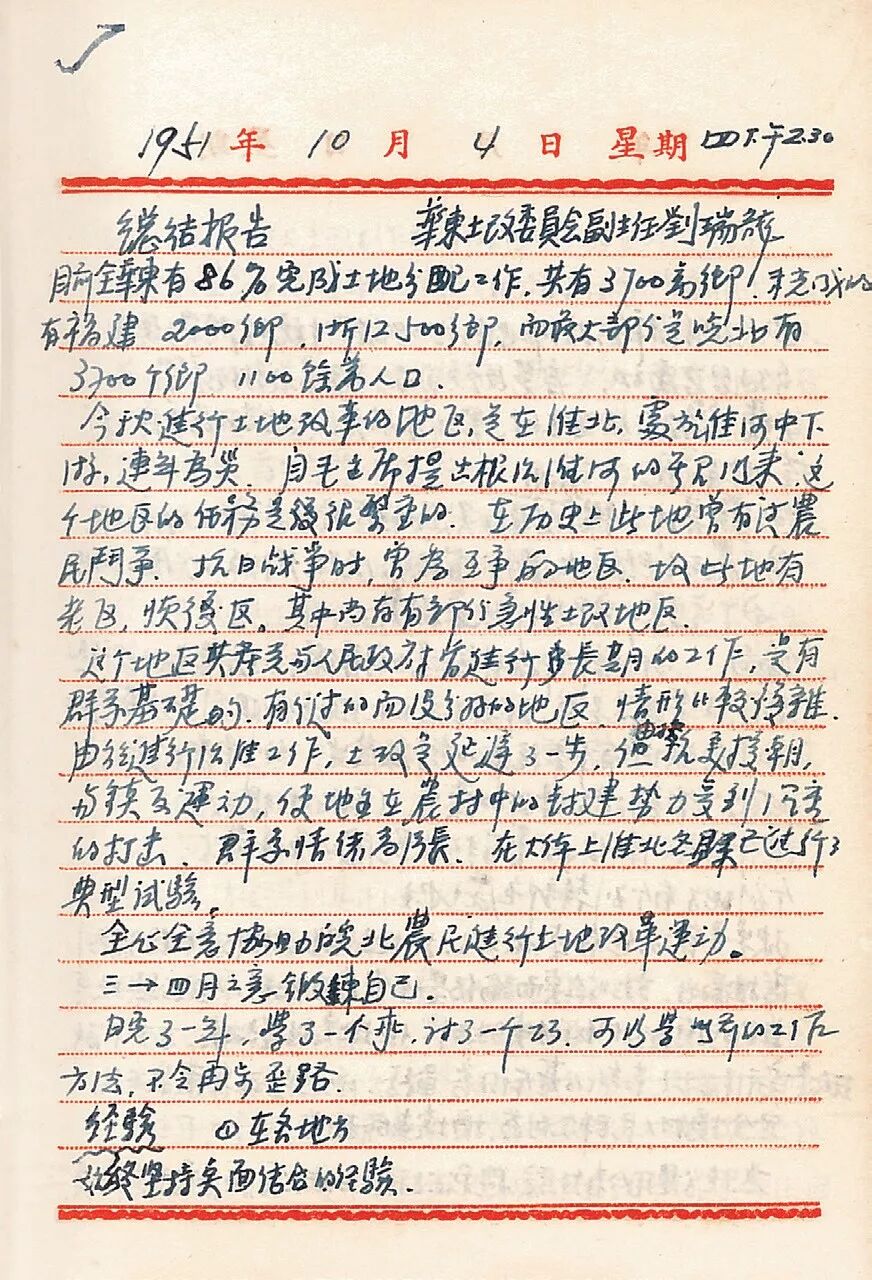 1951年 10月 4日 星期四 下午2.30
总结报告 華東土改委員会副主任劉瑞龙
目前全華東有86%完成土地分配工作，共有3700高鄉，未完成的
有福建2000鄉，浙江2500鄉，而最大部分是皖北有
3700个鄉 1100餘萬人口．
今秋進行土地改革的地区，是在淮北，處於淮河中下
游，連年為災．自毛主席提出根治淮河的号召以来，这
个地区的任務是很繁重的．在历史上此地曾有过農
民鬥争．抗日战争时，曾為互争的地区．故此地有
老区，恢復区。其中尚存有部分急性土改地区．
这个地区共產党与人民政府曾進行了長期的工作，是有
群众基礎的．有分过的而没分好的地区，情形比較復雜．
由於進行治淮工作，土改是延遲了一步，但抗美援朝，
与鎮反運動，使地主在農村中的封建势力受到了
的打击．群众情绪高漲．在大体上淮北各縣已进行了
典型试驗。
全心全意協助皖北農民進行土地改革運动。
三→四月之意鍛鍊自己．
学了一 ，可以学 的工作
方法，不会再步歪路．
经驗 ① 在各地方
始终坚持点面结合的经驗．